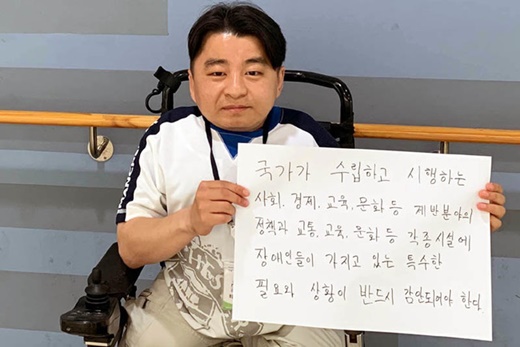 국가가 수립하고 시행하는
사회, 경제, 교육, 문화 등 제반분야의
정책과 교통, 교육, 문화 등 각종시설에
장애인들이 가지고 있는 특수한
필요와 상황이 반드시 감안되어야 한다.